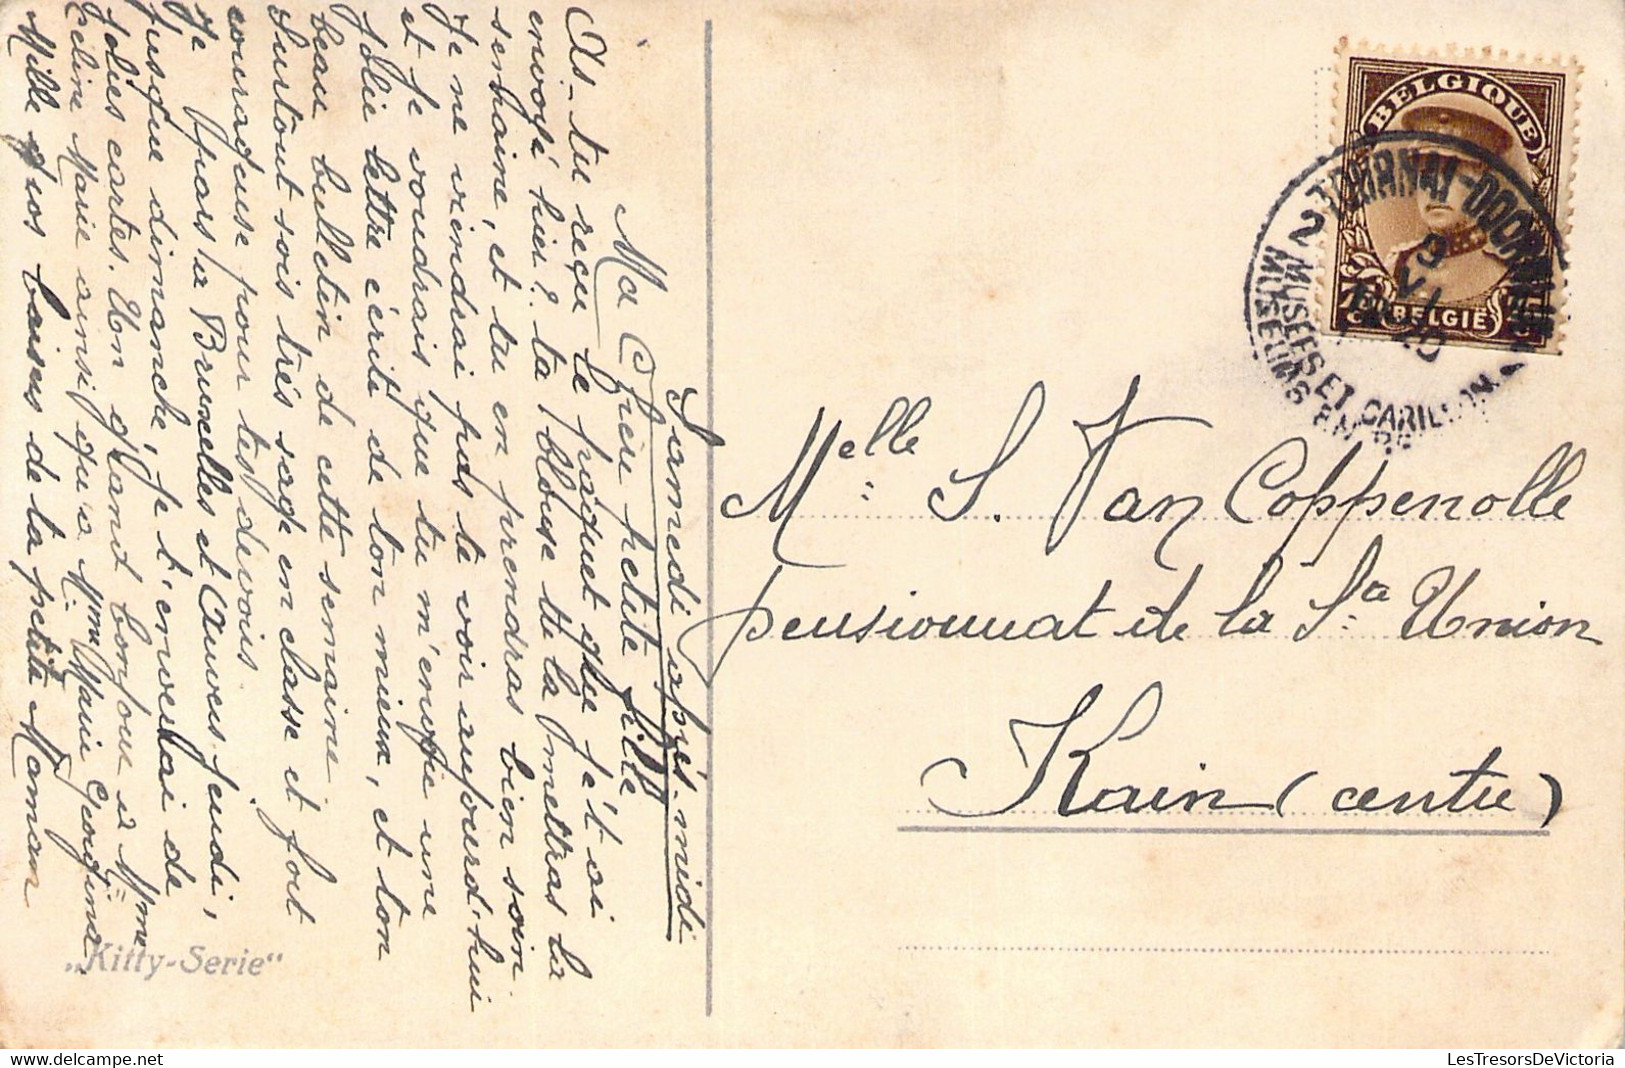 Samedi après-midi
Ma Chère petite fille
As-tu reçu le paquet que je t'ai
envoyé hier? ta blouse tu la mettras la
semaine, et tu en prendras bien soin
Je ne viendrai pas te voir aujourd'hui
et je voudrais que tu m'envoie une
jolie lettre écrite de ton mieux, et ton
beau bulletin de cette semaine
Surtout sois très sage en classe et fort
courageuse pour tes devoirs
Je pars à Bruxelles et Anvers jeudi,
jusque dimanche, je t'enverrai de
jolies cartes. Un grand bonjour à Mme
Céline Marie ainsi qu'à Mme Marie Georgina
Mille gros baisers de ta petite Maman
„Kitty-Serie“
BELGIQUE
75c BELGIË 75c
2 TOURNAI-DOORNIK 2
VI
MUSÉES ET CARILLON
MUSEUMS EN BE
Melle S. Van Coppenolle
pensionnat de la Sta Union
Kain (centre)
LesTresorsDeVictoria